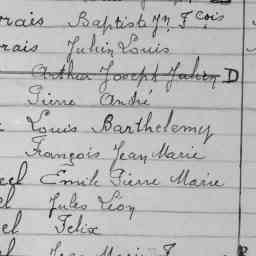 rais Baptiste Jn Fcois
rais Julien Louis
Arthur Joseph Julien D
Pierre André
Louis Barthelemy
François Jean Marie
el Emile Pierre Marie
el Jules Léon
el Felix
Jean Marie F